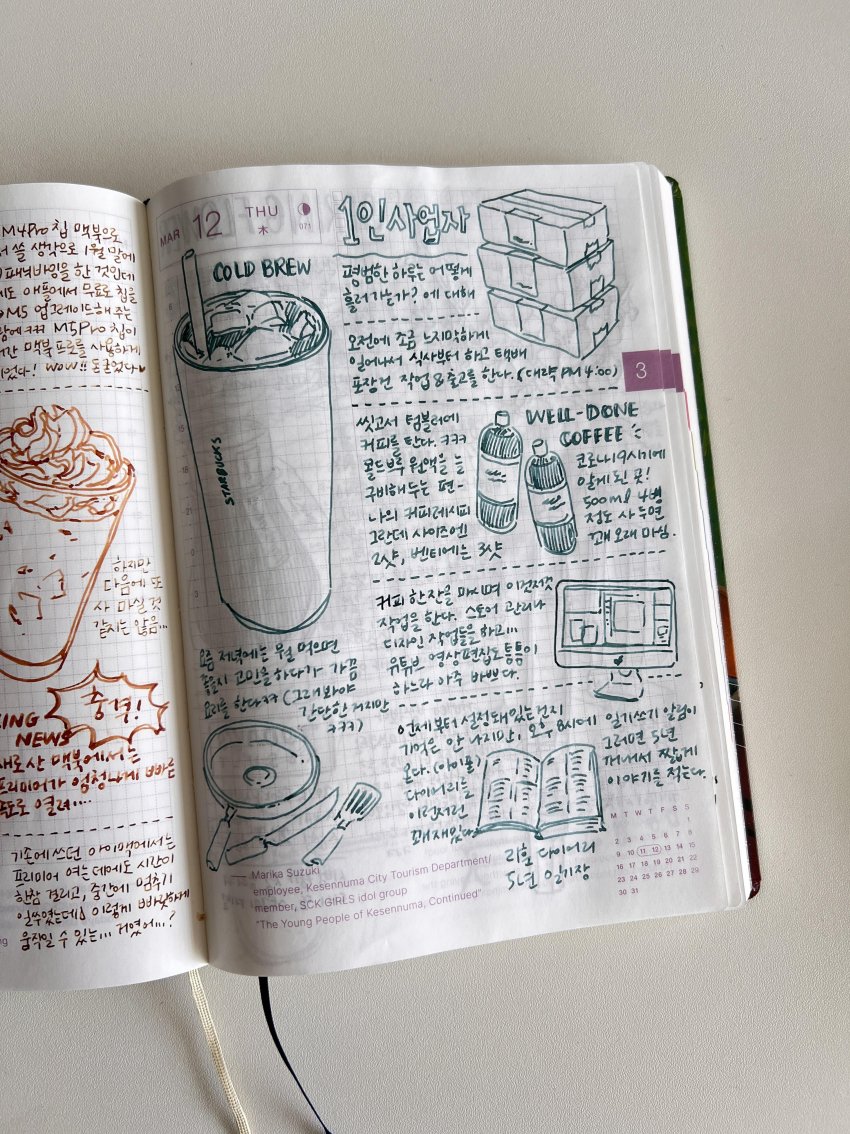 M4Pro 칩 맥북으로
쓸 생각으로 1월 말에
한 것인데
애플에서 무료로 칩을
M5 업그레이드해주는
M5Pro 칩이
맥북 프로를 사용하게
WOW!!
하지만
다음에 또
사 마실 것
같지는 않음...
충격!
KING
NEWS
새로 산 맥북에서는
프리미어가 엄청나게 빠른
속도로 열려....
기존에 쓰던 아이맥에서는
프리미어 여는 데에도 시간이
한참 걸리고, 중간에 멈추기
일쑤였는데! 이렇게 빠릿하게
움직일 수 있는... 거였어...?
MAR 12 THU 木 071
1인사업자
평범한 하루는 어떻게
흘러가는가? 에 대해
오전에 조금 느지막하게
일어나서 식사부터 하고 택배
포장건 작업 & 출고를 한다. (대략 PM 4:00)
3
COLD BREW
STARBUCKS
씻고서 텀블러에
커피를 탄다. ㅋㅋㅋ
콜드브루 원액을 늘
구비해두는 편~
나의 커피레시피
그란데 사이즈엔
2샷, 벤티에는 3샷
WELL-DONE
COFFEE
코로나19시기에
알게 된 곳!
500ml 4병
정도 사두면
꽤 오래 마심.
커피 한잔을 마시며 이런저런
작업을 한다. 스토어 관리나
디자인 작업들을 하고...
유튜브 영상편집도 틈틈이
하느라 아주 바쁘다.
요즘 저녁에는 뭘 먹으면
좋을지 고민을 하다가 가끔
요리를 한다ㅋㅋ (그래봐야
간단한거지만
ㅋㅋㅋ)
언제부터 설정돼있는건지
기억은 안 나지만, 오후 8시에 일기쓰기 알림이
온다. (아이폰) 그러면 5년
다이어리를 꺼내서 짧게
이런저런 이야기를 적는다.
꽤 재밌다
다이어리
5년 일기장
Marika Suzuki
employee, Kesennuma City Tourism Department/
member, SCK GIRLS idol group
"The Young People of Kesennuma, Continued"
M T W T F S S
1
2 3 4 5 6 7 8
9 10 11 12 13 14 15
16 17 18 19 20 21 22
23 24 25 26 27 28 29
30 31